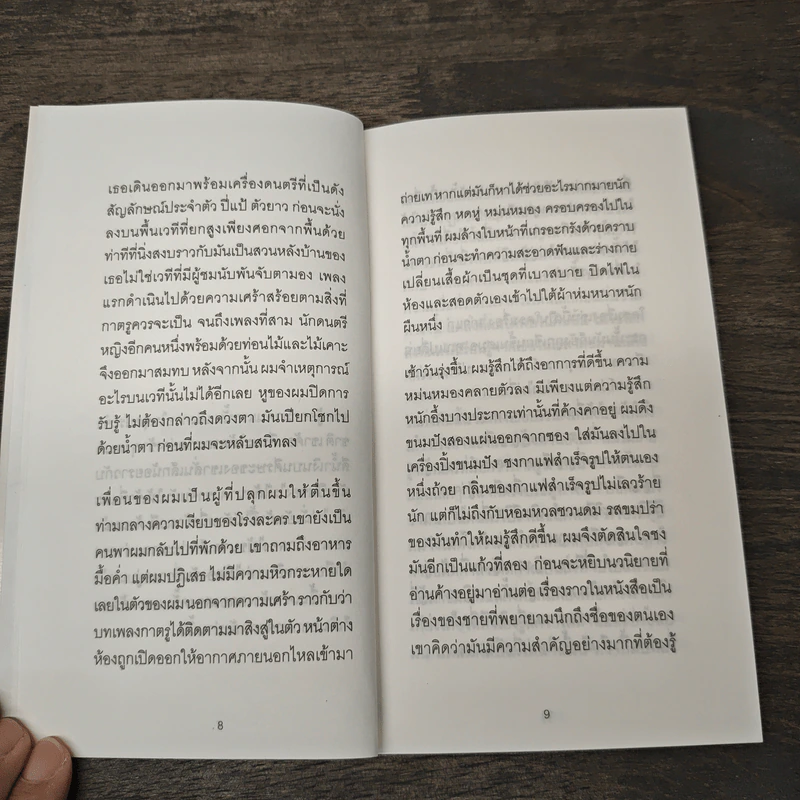 เธอเดินออกมาพร้อมเครื่องดนตรีที่เป็นดัง
สัญลักษณ์ประจำตัว ปี่แป้ ตัวยาว ก่อนจะนั่ง
ลงบนพื้นเวทีที่ยกสูงเพียงศอกจากพื้นด้วย
ท่าทีที่นิ่งสงบราวกับมันเป็นสวนหลังบ้านของ
เธอไม่ใช่เวทีที่มีผู้ชมนับพันจับตามอง เพลง
แรกดำเนินไปด้วยความเศร้าสร้อยตามสิ่งที่
กาตรูควรจะเป็น จนถึงเพลงที่สาม นักดนตรี
หญิงอีกคนหนึ่งพร้อมด้วยท่อนไม้และไม้เคาะ
จึงออกมาสมทบ หลังจากนั้น ผมจำเหตุการณ์
อะไรบนเวทีนั้นไม่ได้อีกเลย หูของผมปิดการ
รับรู้ ไม่ต้องกล่าวถึงดวงตา มันเปียกโชกไป
ด้วยน้ำตา ก่อนที่ผมจะหลับสนิทลง
เพื่อนของผมเป็นผู้ที่ปลุกผมให้ตื่นขึ้น
ท่ามกลางความเงียบของโรงละคร เขายังเป็น
คนพาผมกลับไปที่พักด้วย เขาถามถึงอาหาร
มื้อค่ำ แต่ผมปฏิเสธ ไม่มีความหิวกระหายใด
เลยในตัวของผมนอกจากความเศร้า ราวกับว่า
บทเพลงกาตรูได้ติดตามมาสิงสู่ในตัว หน้าต่าง
ห้องถูกเปิดออกให้อากาศภายนอกไหลเข้ามา
8
ถ่ายเท หากแต่มันก็หาได้ช่วยอะไรมากมายนัก
ความรู้สึก หดหู่ หม่นหมอง ครอบครองไปใน
ทุกพื้นที่ ผมล้างใบหน้าที่เกรอะกรังด้วยคราบ
น้ำตา ก่อนจะทำความสะอาดฟันและร่างกาย
เปลี่ยนเสื้อผ้าเป็นชุดที่เบาสบาย ปิดไฟใน
ห้องและสอดตัวเองเข้าไปใต้ผ้าห่มหนาหนัก
ผืนหนึ่ง
เช้าวันรุ่งขึ้น ผมรู้สึกได้ถึงอาการที่ดีขึ้น ความ
หม่นหมองคลายตัวลง มีเพียงแต่ความรู้สึก
หนักอึ้งบางประการเท่านั้นที่ค้างคาอยู่ ผมดึง
ขนมปังสองแผ่นออกจากซอง ใส่มันลงไปใน
เครื่องปิ้งขนมปัง ชงกาแฟสำเร็จรูปให้ตนเอง
หนึ่งถ้วย กลิ่นของกาแฟสำเร็จรูปไม่เลวร้าย
นัก แต่ก็ไม่ถึงกับหอมหวลชวนดม รสขมปร่า
ของมันทำให้ผมรู้สึกดีขึ้น ผมจึงตัดสินใจชง
มันอีกเป็นแก้วที่สอง ก่อนจะหยิบนวนิยายที่
อ่านค้างอยู่มาอ่านต่อ เรื่องราวในหนังสือเป็น
เรื่องของชายที่พยายามนึกถึงชื่อของตนเอง
เขาคิดว่ามันมีความสำคัญอย่างมากที่ต้องรู้
9